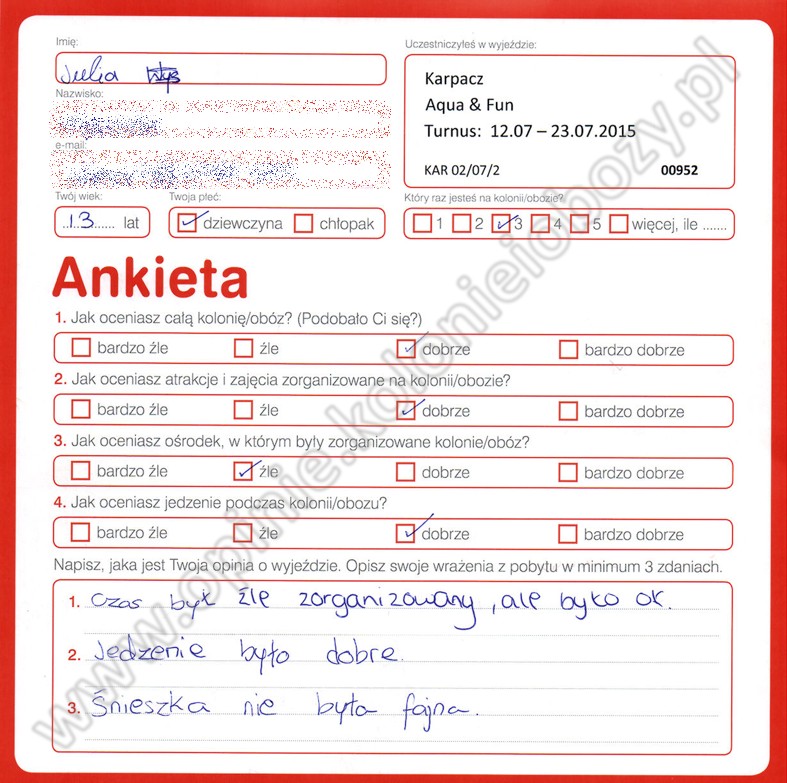 Imię:
Julia
Uczestniczyłeś w wyjeździe:
Karpacz
Aqua & Fun
Turnus: 12.07 – 23.07.2015
KAR 02/07/2 00952
Nazwisko:
e-mail:
Twój wiek:
13 lat
Twoja płeć:
dziewczyna chłopak
Który raz jesteś na kolonii/obozie?
1 2 3 4 5 więcej, ile .......
Ankieta
1. Jak oceniasz całą kolonię/obóz? (Podobało Ci się?)
bardzo źle źle dobrze bardzo dobrze
2. Jak oceniasz atrakcje i zajęcia zorganizowane na kolonii/obozie?
bardzo źle źle dobrze bardzo dobrze
3. Jak oceniasz ośrodek, w którym były zorganizowane kolonie/obóz?
bardzo źle źle dobrze bardzo dobrze
4. Jak oceniasz jedzenie podczas kolonii/obozu?
bardzo źle źle dobrze bardzo dobrze
Napisz, jaka jest Twoja opinia o wyjeździe. Opisz swoje wrażenia z pobytu w minimum 3 zdaniach.
1. Czas był źle zorganizowany, ale było ok.
2. Jedzenie było dobre.
3. Śnieszka nie była fajna.
www.opinie.kolonieiobozy.pl